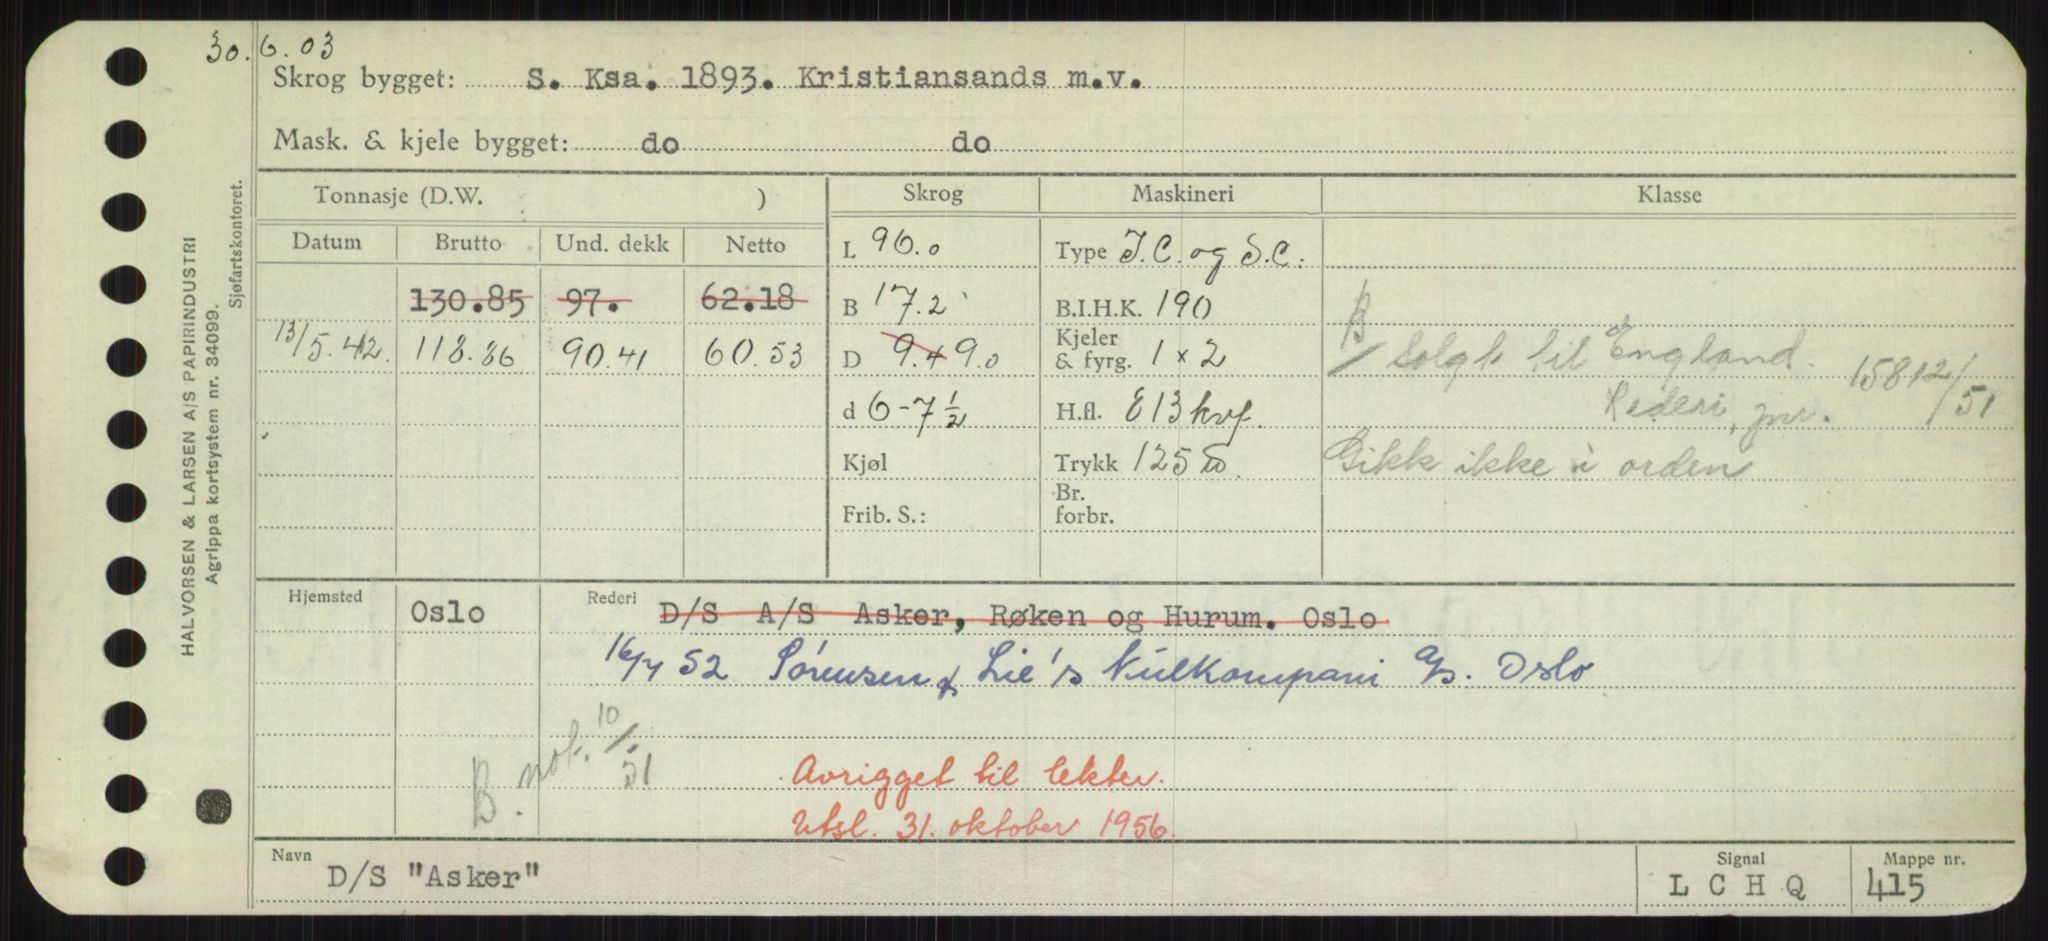 30.6.03
Skrog bygget: S. Ksa. 1893. Kristiansands m.v.
Mask. & kjele bygget: do do
Tonnasje (D.W. ) Skrog Maskineri Klasse
Datum Brutto Und. dekk Netto
L 96.0 Type J.C. og S.C.
130.85 97. 62.18 B 17.2 B.I.H.K. 190
13/5.42. 118.86 90.41 60.53 D 9.4 9.0 Kjeler & fyrg. 1 x 2
B/ Solgt til England. 15812/51
d 6-7½ H.fl. 813 kvf. Rederi, jnr.
Kjøl Trykk 125 Gikk ikke i orden
Frib. S.: Br. forbr.
Hjemsted Oslo Rederi D/S A/S Asker, Røken og Hurum. Oslo
52 Sørensen & Lie's Kullkompani A/S. Oslo
B. not. 10/51
Avrigget til lekter.
Utsl. 31. oktober 1956.
Navn D/S "Asker" Signal L C H Q Mappe nr. 415
HALVORSEN & LARSEN A/S PAPIRINDUSTRI
Agrippa kortsystem nr. 34099.
Sjøfartskontoret.